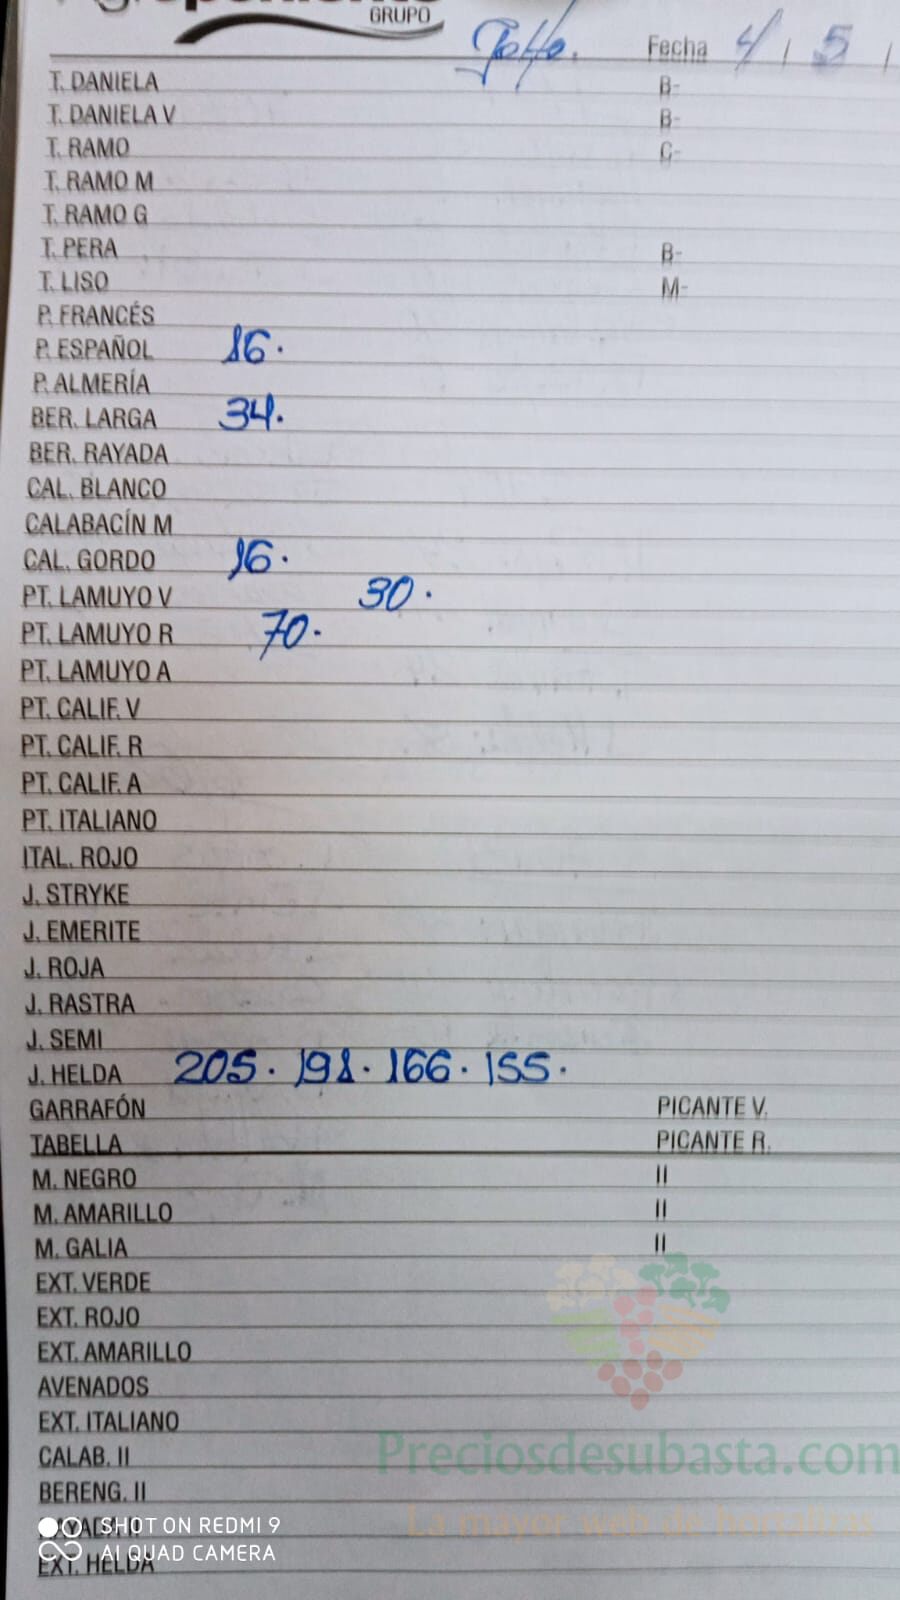 GRUPO
Fecha 4 / 5 /
T. DANIELA B-
T. DANIELA V B-
T. RAMO G-
T. RAMO M
T. RAMO G
T. PERA B-
T. LISO M-
P. FRANCÉS
P. ESPAÑOL 16.
P. ALMERÍA
BER. LARGA 34.
BER. RAYADA
CAL. BLANCO
CALABACÍN M
CAL. GORDO 16.
PT. LAMUYO V 30.
PT. LAMUYO R 70.
PT. LAMUYO A
PT. CALIF. V
PT. CALIF. R
PT. CALIF. A
PT. ITALIANO
ITAL. ROJO
J. STRYKE
J. EMERITE
J. ROJA
J. RASTRA
J. SEMI
J. HELDA 205. 191. 166. 155.
GARRAFÓN PICANTE V.
TABELLA PICANTE R.
M. NEGRO II
M. AMARILLO II
M. GALIA II
EXT. VERDE
EXT. ROJO
EXT. AMARILLO
AVENADOS
EXT. ITALIANO
CALAB. II
Preciosdesubasta.com
BERENG. II
La mayor web de hortalizas
SHOT ON REDMI 9
AI QUAD CAMERA
EXT. HELDA